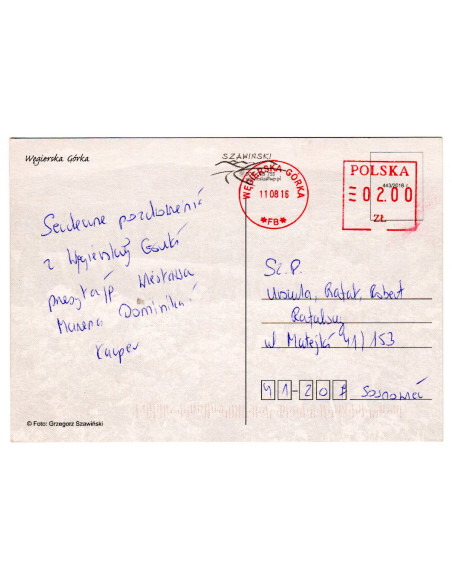 Węgierska Górka
SZAWIŃSKI
WĘGIERSKA GÓRKA
11 08 16
*FB*
POLSKA
443/2016
=02.00
ZŁ
Serdeczne pozdrowienia
z Węgierskiej Górki
przesyłają Wiesława
Marena Dominika
Kacper
Sz. P.
Urszula, Rafał, Robert
ul Matejki 41/153
41-20 Sosnowiec
© Foto: Grzegorz Szawiński